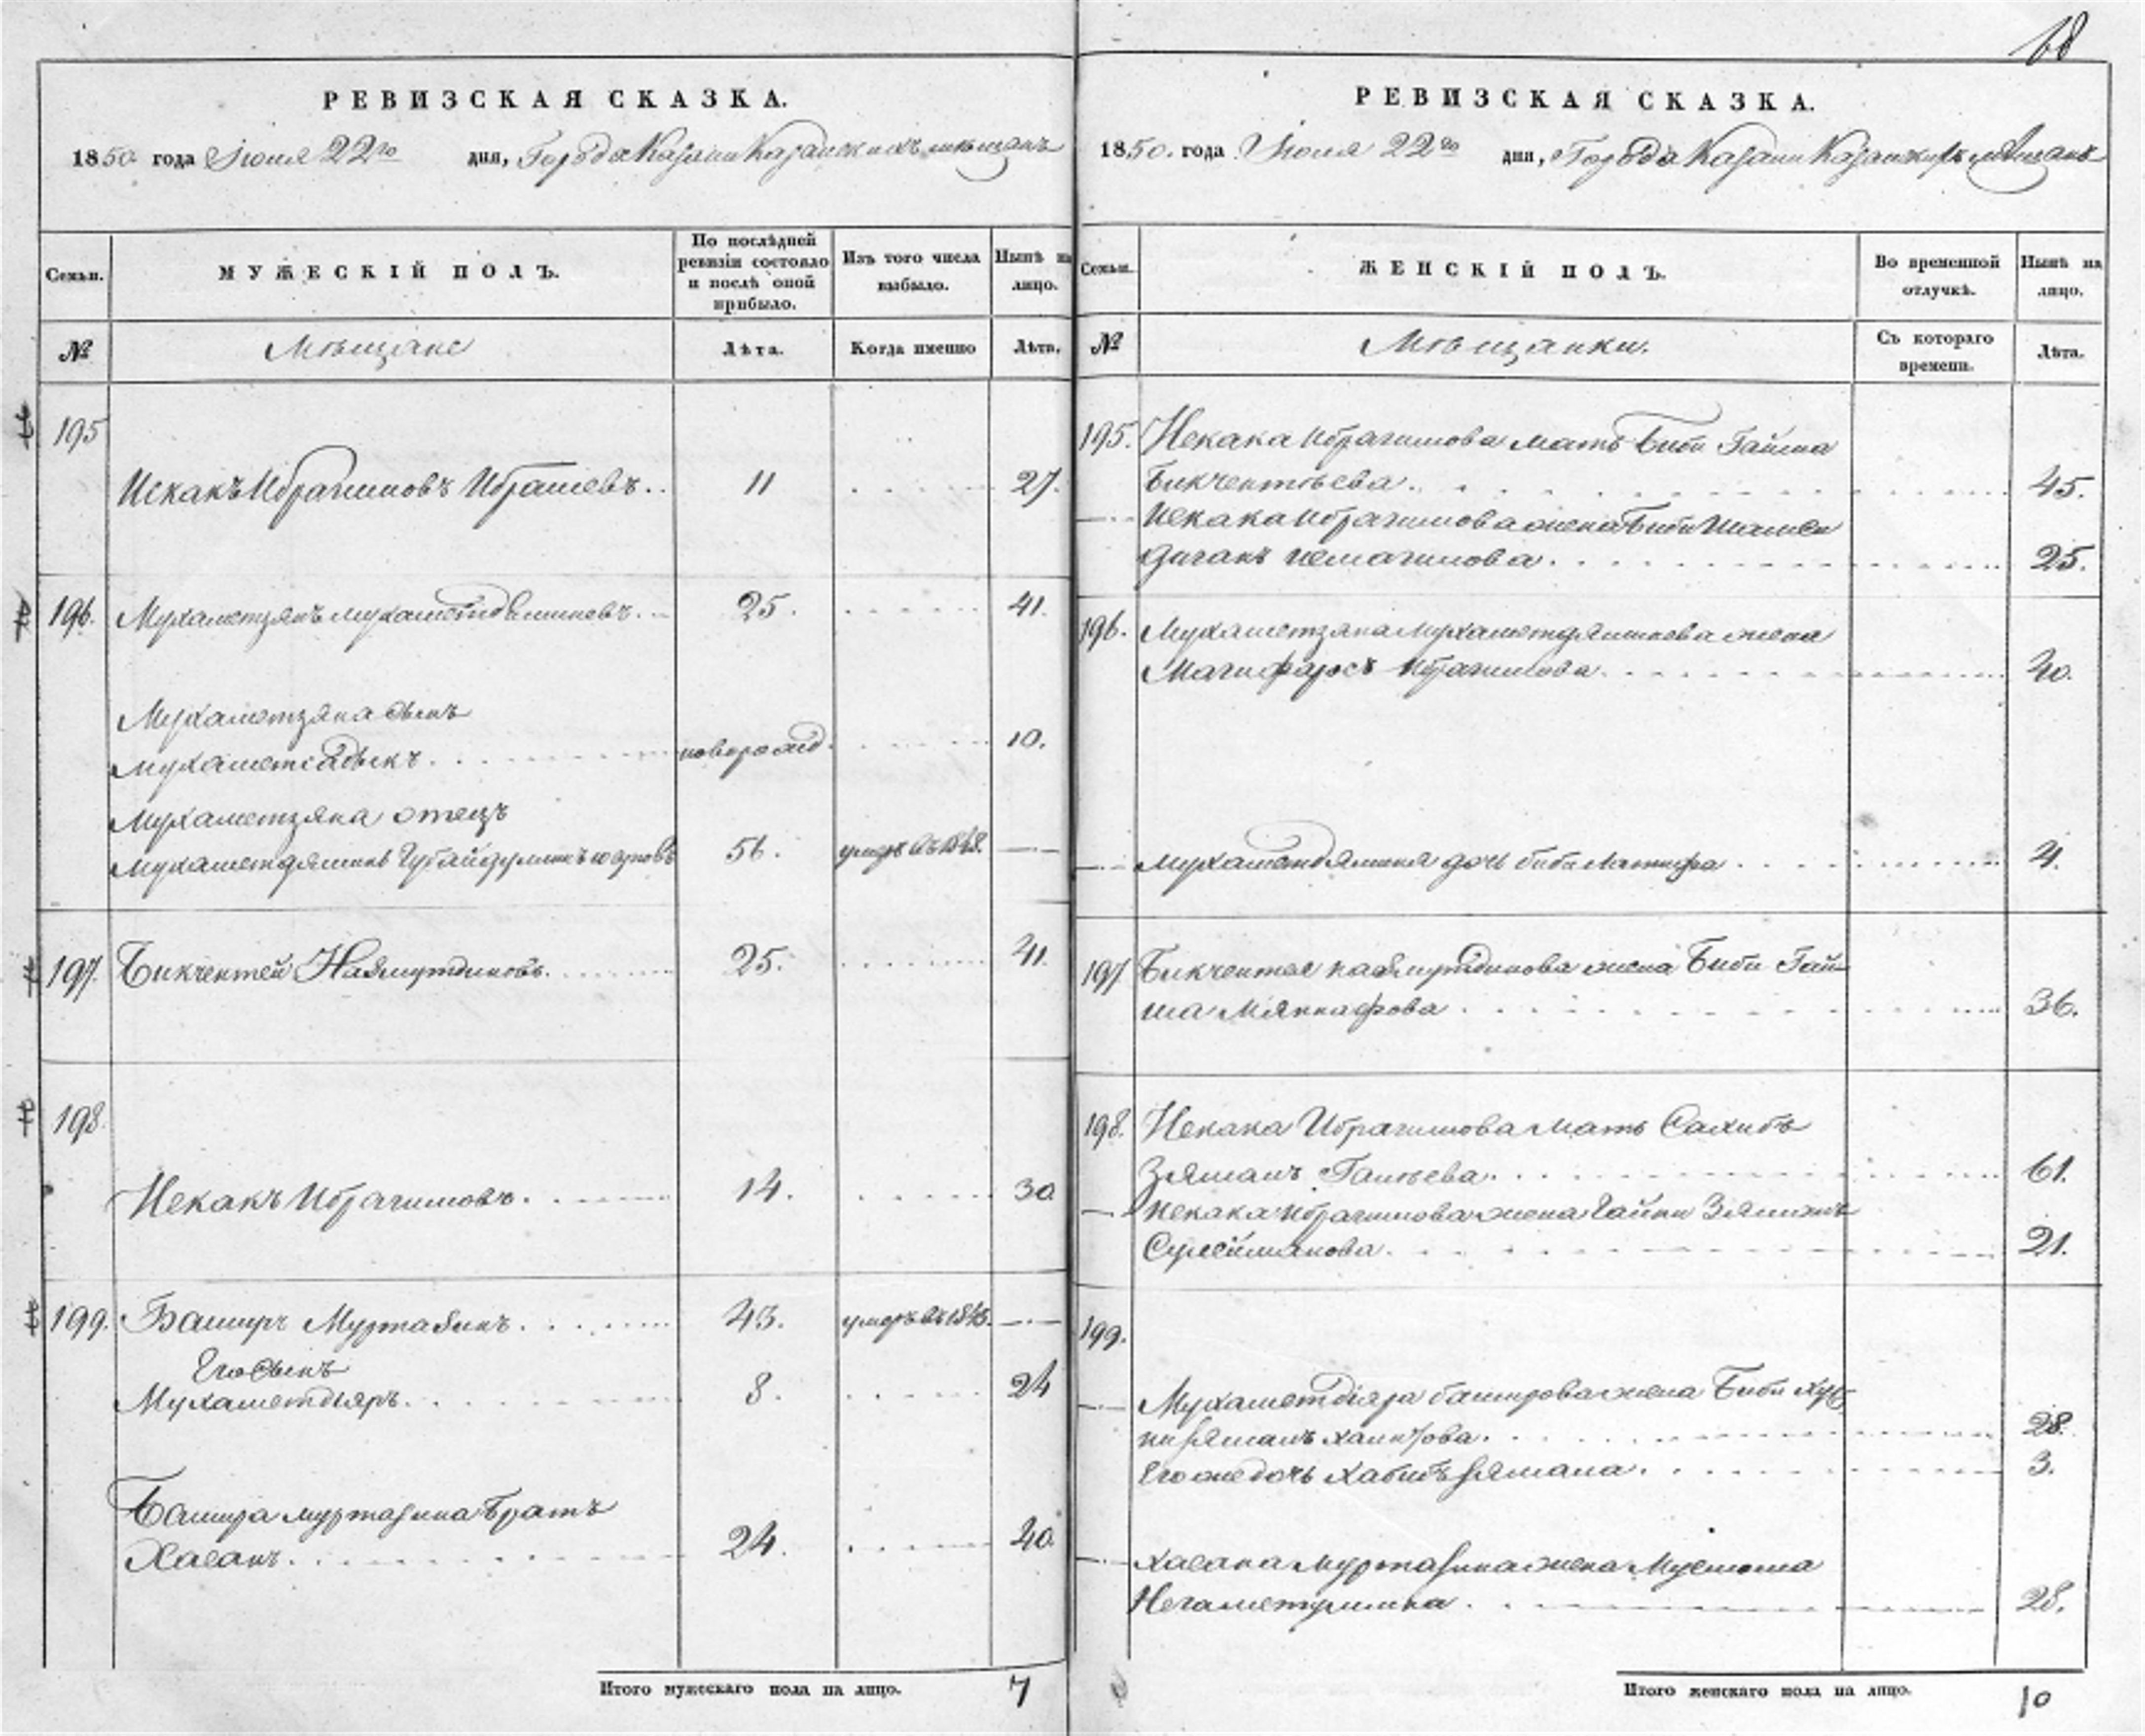 68
РЕВИЗСКАЯ СКАЗКА.
1850 года Июня 22го дня, Города Казани Казанскихъ мѣщанъ
Семьи.
МУЖЕСКІЙ ПОЛЪ.
По послѣдней ревизіи состояло и послѣ оной прибыло.
Изъ того числа выбыло.
Нынѣ на лицо.
№
Мѣщане
Лѣта.
Когда именно
Лѣта.
195
Искакъ Ибрагимовъ Ибраевъ. 11 27.
196. Мухаметзянъ Мухаметдеминевъ. 25. 41.
Мухаметзяна сынъ
Мухаметсадыкъ. новорожд. 10.
Мухаметзяна отецъ
Мухаметдяминъ Губайдуллинъ 56. умеръ въ 1848. —
197. Бикчентей Наямутдиновъ. 25. 41.
198.
Искакъ Ибрагимовъ. 14. 30
199. Баширъ Муртазинъ. 43. умеръ въ 1843. —
Его сынъ
Мухаметдіяръ. 8. 24
Башира Муртазина братъ
Хасанъ. 24. 40.
Итого мужескаго пола на лицо. 7
РЕВИЗСКАЯ СКАЗКА.
1850. года Июня 22го дня, Города Казани Казанскихъ мѣщанъ
Семьи.
ЖЕНСКІЙ ПОЛЪ.
Во временной отлучкѣ.
Нынѣ на лицо.
№
Мѣщанки.
Съ котораго времени.
Лѣта.
195. Искака Ибрагимова мать Биби Гайша
Бикчентѣева. 45.
Искака Ибрагимова жена Биби Шамси
Исмагилова. 25.
196. Мухаметзяна Мухаметдяминева жена
Ибрагимова. 40.
Мухаметдямина дочь Биби Латифа 4.
197 Бикчентея Наямутдинова жена Биби Гай-
ша Мяннафова 36.
198. Искака Ибрагимова мать Сахибъ
Зяманъ Гаитѣева. 61.
Искака Ибрагимова жена Гайни Зяманъ
Сулейманова. 21.
199.
Мухаметдіяра Баширова жена Биби Хуб-
низяманъ Халитова. 28.
Его же дочь Хабибъзямана. 3.
Хасана Муртазина жена
Негаметуллина. 28.
Итого женскаго пола на лицо. 10